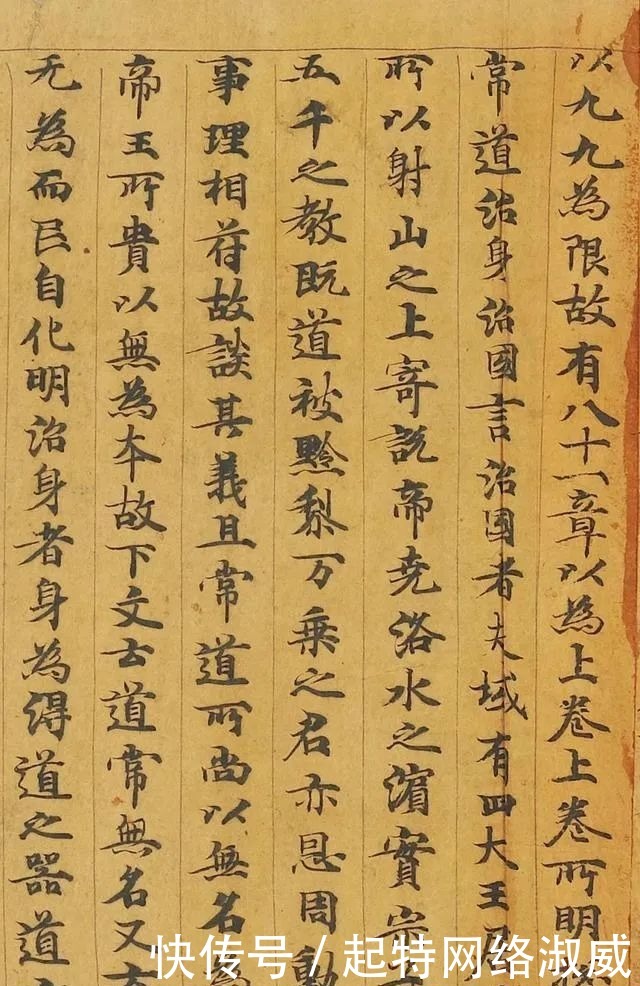 以九九為限故有八十一章以為上卷上卷所明
常道治身治國言治國者夫域有四大王居
所以射山之上寄説帝尭洛水之濵實宗
五千之教既道被黔黎万乗之君亦恩周動
事理相苻故談其義且常道所尚以無名為
帝王所貴以無為夲故下文云道常無名又云
无為而民自化明治身者身為得道之器道
快传号 / 起特网络淑威